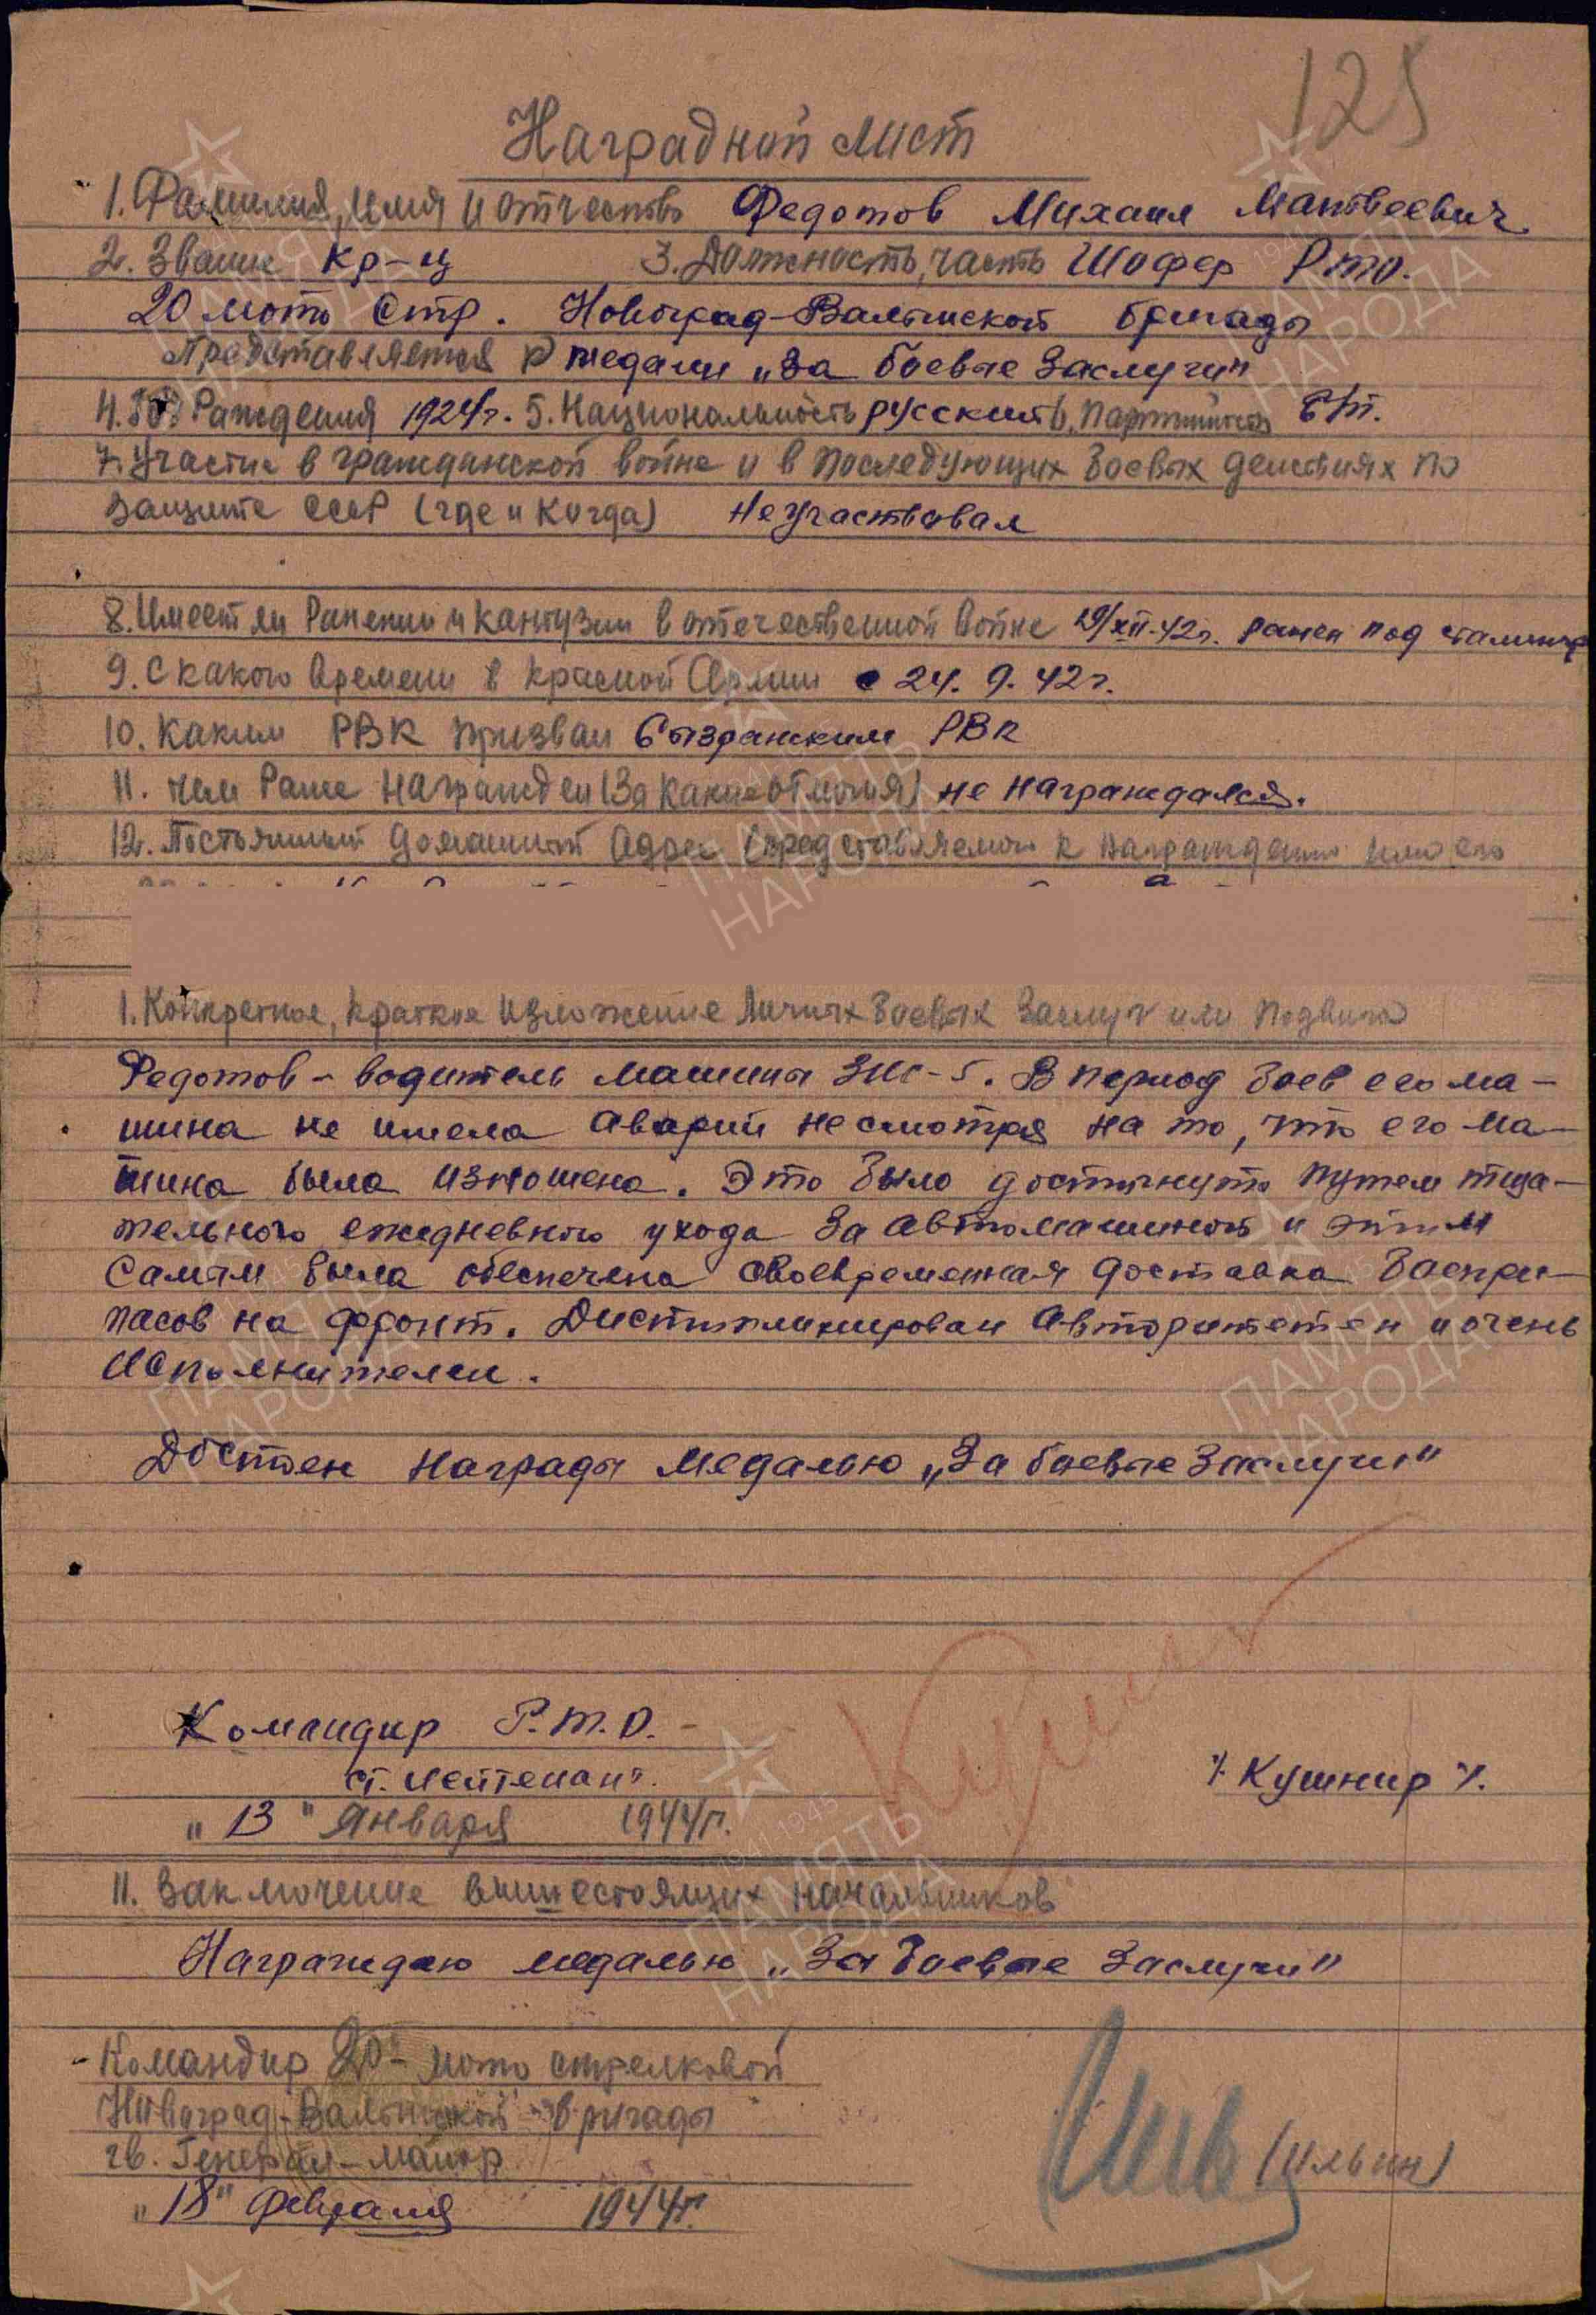 125
Наградной лист
1. Фамилия, имя и отчество Федотов Михаил Матвеевич
2. Звание Кр-ц 3. Должность, часть Шофер Рто.
20 мото Стр. Новоград-Волынской бригады
Представляется к медали „За боевые заслуги"
4. Год Рождения 1924г. 5. Национальность русский 6. Партийность б/п.
7. Участие в гражданской войне и в последующих боевых действиях по
защите СССР (где и когда) Не участвовал
8. Имеет ли Ранении и Кантузии в отечественной войне 29/XII-42г. ранен под Сталингр
9. С какого времени в Красной Армии с 24. 9. 42г.
10. Каким РВК призван Сызранским РВК
11. Чем Ране Награжден (За какие отличия) не награждался.
12. Постоянный домашний адрес (представляемого к награждению или его
1. Конкретное, краткое изложение личных боевых заслуг или подвига
Федотов - водитель машины ЗИС-5. В период боев его ма-
шина не имела аварий несмотря на то, что его ма-
шина была изношена. Это было достигнуто путем тща-
тельного ежедневного ухода за автомашиной и этим
самым была обеспечена своевременная доставка боепри-
пасов на фронт. Дисциплинирован авторитетен и очень
исполнителен.
Достоен награды медалью „За боевые заслуги"
Командир Р.Т.О. -
ст. лейтенант.
„13" Января 1944г.
/. Кушнир /.
II. Заключение вышестоящих начальников
Награждаю медалью „За боевые заслуги"
Командир 20- мото стрелковой
Новоград-Волынской бригады
гв. Генерал-майор
(Ильин)
„18" февраля 1944г.
ПАМЯТЬ
НАРОДА
1941 1945